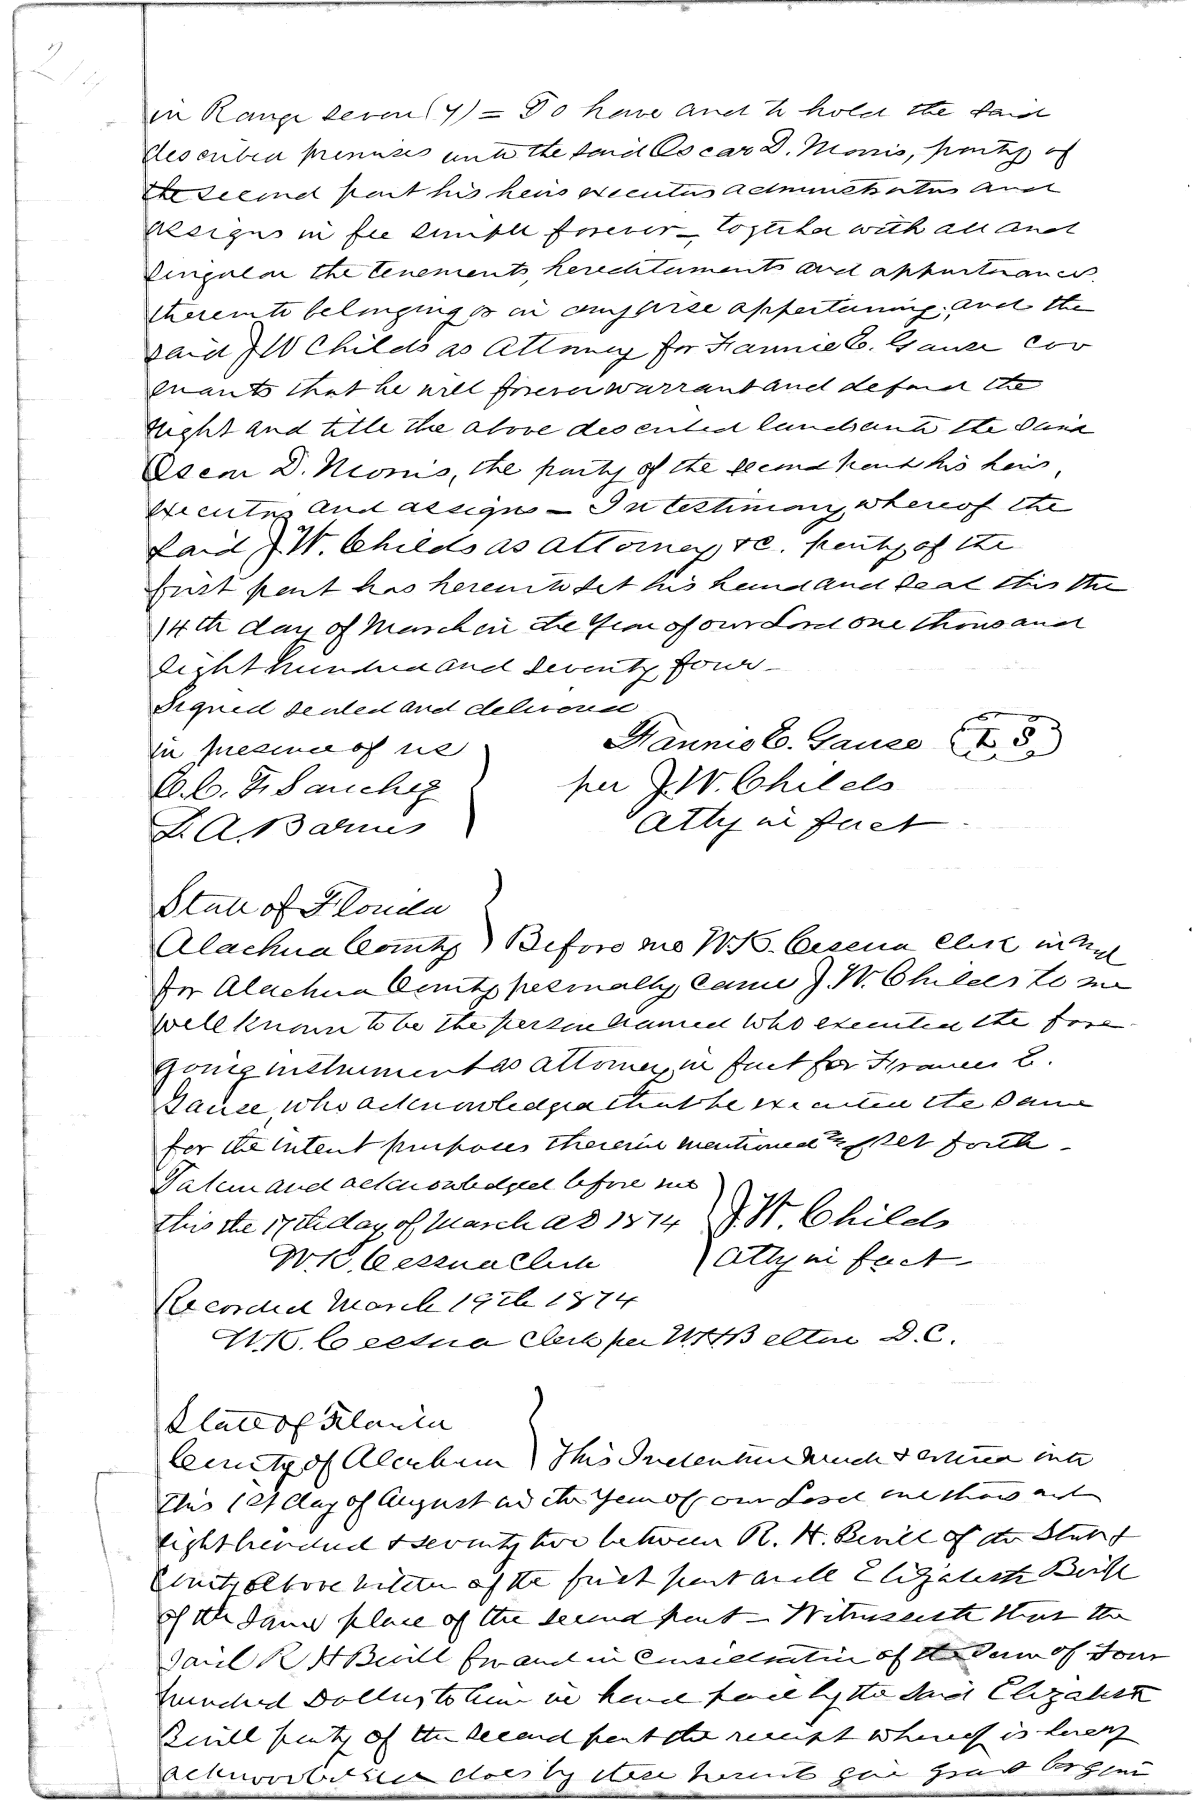 in Range seven (7) = To have and to hold the said
described premises unto the said Oscar D. Morris, party of
the second part his heirs executors administrators and
assigns in fee simple forever – together with all and
singular the tenements, hereditaments and appurtenances
thereunto belonging or in anywise appertaining; and the
said J W Childs as Attorney for Fannie E. Gause cov
enants that he will forever warrant and defend the
right and title the above described lands unto the said
Oscar D. Morris, the party of the second part his heirs,
executors and assigns – In testimony whereof the
said J. W. Childs as attorney &c. party of the
first part has hereunto set his hand and seal this the
14th day of March in the year of our Lord one thousand
eight hundred and seventy four –
Signed sealed and delivered
in presence of us
Fannie E. Gause L S
C. C. F. Sanchez
per J. W. Childs
L. A. Barnes
Atty in fact
State of Florida
Alachua County Before me W. K. Cessna Clerk in and
for Alachua County personally came J. W. Childs to me
well known to be the person named who executed the fore-
going instrument as attorney in fact for Frances E.
Gause, who acknowledged that he executed the same
for the intent purposes therein mentioned and set forth –
Taken and acknowledged before me
this the 17th day of March A D 1874 J. W. Childs
W. K. Cessna Clerk Atty in fact
Recorded March 19th 1874
W. K. Cessna Clerk per W. H. Belton D. C.
State of Florida
County of Alachua This Indenture made & entered into
this 1st day of August in the year of our Lord one thousand
eight hundred & seventy two between R. H. Bevill of the State &
County above written of the first part and Elizabeth Bevill
of the same place of the second part – Witnesseth that the
said R H Bevill for and in consideration of the sum of Four
hundred Dollars to him in hand paid by the said Elizabeth
Bevill party of the second part the receipt whereof is hereby
acknowledged does by these presents give grant bargain